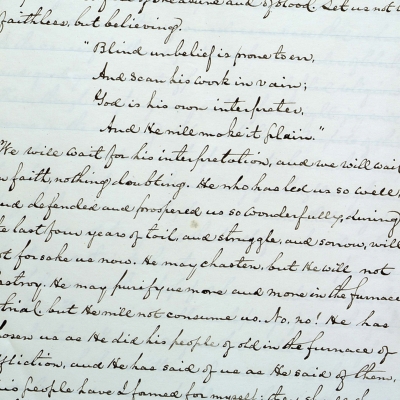 of treasure and of blood. Let us not
faithless, but believing.
"Blind unbelief is prone to err,
And scan his work in vain;
God is his own interpreter,
And He will make it plain."
We will wait for his interpretation, and we will wait
faith, nothing doubting. He who has led us so well,
and defended and prospered us so wonderfully, during
last four years of toil, and struggle, and sorrow, will
not forsake us now. He may chasten, but He will not
destroy. He may purify us more and more in the furnace
trial, but He will not consume us. No, no! He has
chosen us as He did his people of old in the furnace of
affliction, and He has said of us as He said of them,
this people have I formed for myself; they shall